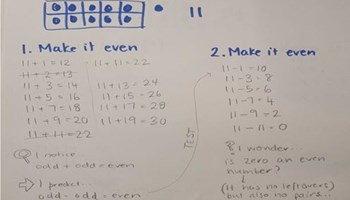 11
1. Make it even
11 + 1 = 12
11 + 2 = 13
11 + 3 = 14
11 + 5 = 16
11 + 7 = 18
11 + 9 = 20
11 + 11 = 22
11 + 11 = 22
11 + 13 = 24
11 + 15 = 26
11 + 17 = 28
11 + 19 = 30
I notice
odd + odd = even
I predict
odd - odd = even
TEST
2. Make it even
11 - 1 = 10
11 - 3 = 8
11 - 5 = 6
11 - 7 = 4
11 - 9 = 2
11 - 11 = 0
I wonder
is zero an even
number?
(It has no leftovers)
but also no pairs...